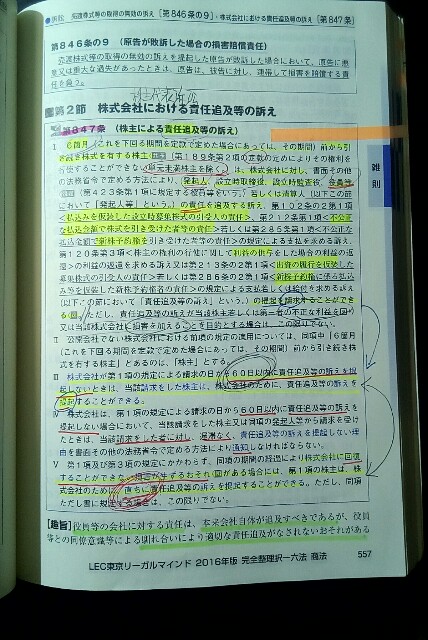 ●訴訟 売渡株式等の取得の無効の訴え［第846条の9］・株式会社における責任追及等の訴え［第847条］
第846条の9 （原告が敗訴した場合の損害賠償責任）
売渡株式等の取得の無効の訴えを提起した原告が敗訴した場合において、原告に悪
意又は重大な過失があったときは、原告は、被告に対し、連帯して損害を賠償する責
任を負う。
第2節 株式会社における責任追及等の訴え
第847条 （株主による責任追及等の訴え）
Ⅰ 6箇月（これを下回る期間を定款で定めた場合にあっては、その期間）前から引
き続き株式を有する株主（第189条第2項の定款の定めによりその権利を
行使することができない単元未満株主を除く。）は、株式会社に対し、書面その他
の法務省令で定める方法により、発起人、設立時取締役、設立時監査役、役員等
（第423条第1項に規定する役員等をいう。）若しくは清算人（以下この節
において「発起人等」という。）の責任を追及する訴え、第102条の2第1
項<払込みを仮装した設立時募集株式の引受人の責任>、第212条第1項<不公正
な払込金額で株式を引き受けた者等の責任>若しくは第285条第1項<不公正な
払込金額で新株予約権を引き受けた者等の責任>の規定による支払を求める訴え、
第120条第3項<株主の権利の行使に関して利益の供与をした場合の利益の返
還>の利益の返還を求める訴え又は第213条の2第1項<出資の履行を仮装した
募集株式の引受人の責任>若しくは第286条の2第1項<新株予約権に係る払込
み等を仮装した新株予約権者等の責任>の規定による支払若しくは給付を求める訴え
（以下この節において「責任追及等の訴え」という。）の提起を請求することができ
る。ただし、責任追及等の訴えが当該株主若しくは第三者の不正な利益を図り
又は当該株式会社に損害を加えることを目的とする場合は、この限りでない。
Ⅱ 公開会社でない株式会社における前項の規定の適用については、同項中「6箇月
（これを下回る期間を定款で定めた場合にあっては、その期間）前から引き続き株
式を有する株主」とあるのは、「株主」とする。
Ⅲ 株式会社が第1項の規定による請求の日から60日以内に責任追及等の訴えを提
起しないときは、当該請求をした株主は、株式会社のために、責任追及等の訴えを
提起することができる。
Ⅳ 株式会社は、第1項の規定による請求の日から60日以内に責任追及等の訴えを
提起しない場合において、当該請求をした株主又は同項の発起人等から請求を受け
たときは、当該請求をした者に対し、遅滞なく、責任追及等の訴えを提起しない理
由を書面その他の法務省令で定める方法により通知しなければならない。
Ⅴ 第1項及び第3項の規定にかかわらず、同項の期間の経過により株式会社に回復
することができない損害が生ずるおそれがある場合には、第1項の株主は、株
式会社のために、直ちに責任追及等の訴えを提起することができる。ただし、同項
ただし書に規定する場合は、この限りでない。
［趣旨］役員等の会社に対する責任は、本来会社自体が追及すべきであるが、役員
等との同僚意識等による馴れ合いにより適切な責任追及がなされないおそれがある
雑則
LEC東京リーガルマインド 2016年版 完全整理択一六法 商法
557